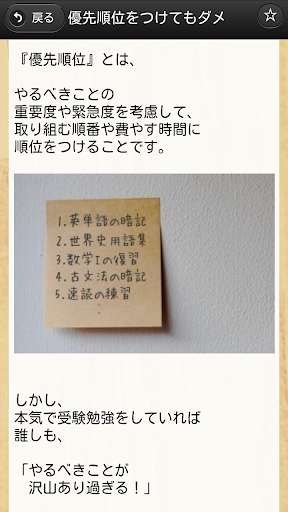 戻る
優先順位をつけてもダメ
『優先順位』とは、
やるべきことの
重要度や緊急度を考慮して、
取り組む順番や費やす時間に
順位をつけることです。
1.英単語の暗記
2.世界史用語集
3.数学Iの復習
4.古文法の暗記
5.速読の練習
⋮
しかし、
本気で受験勉強をしていれば
誰しも、
「やるべきことが
沢山あり過ぎる！」